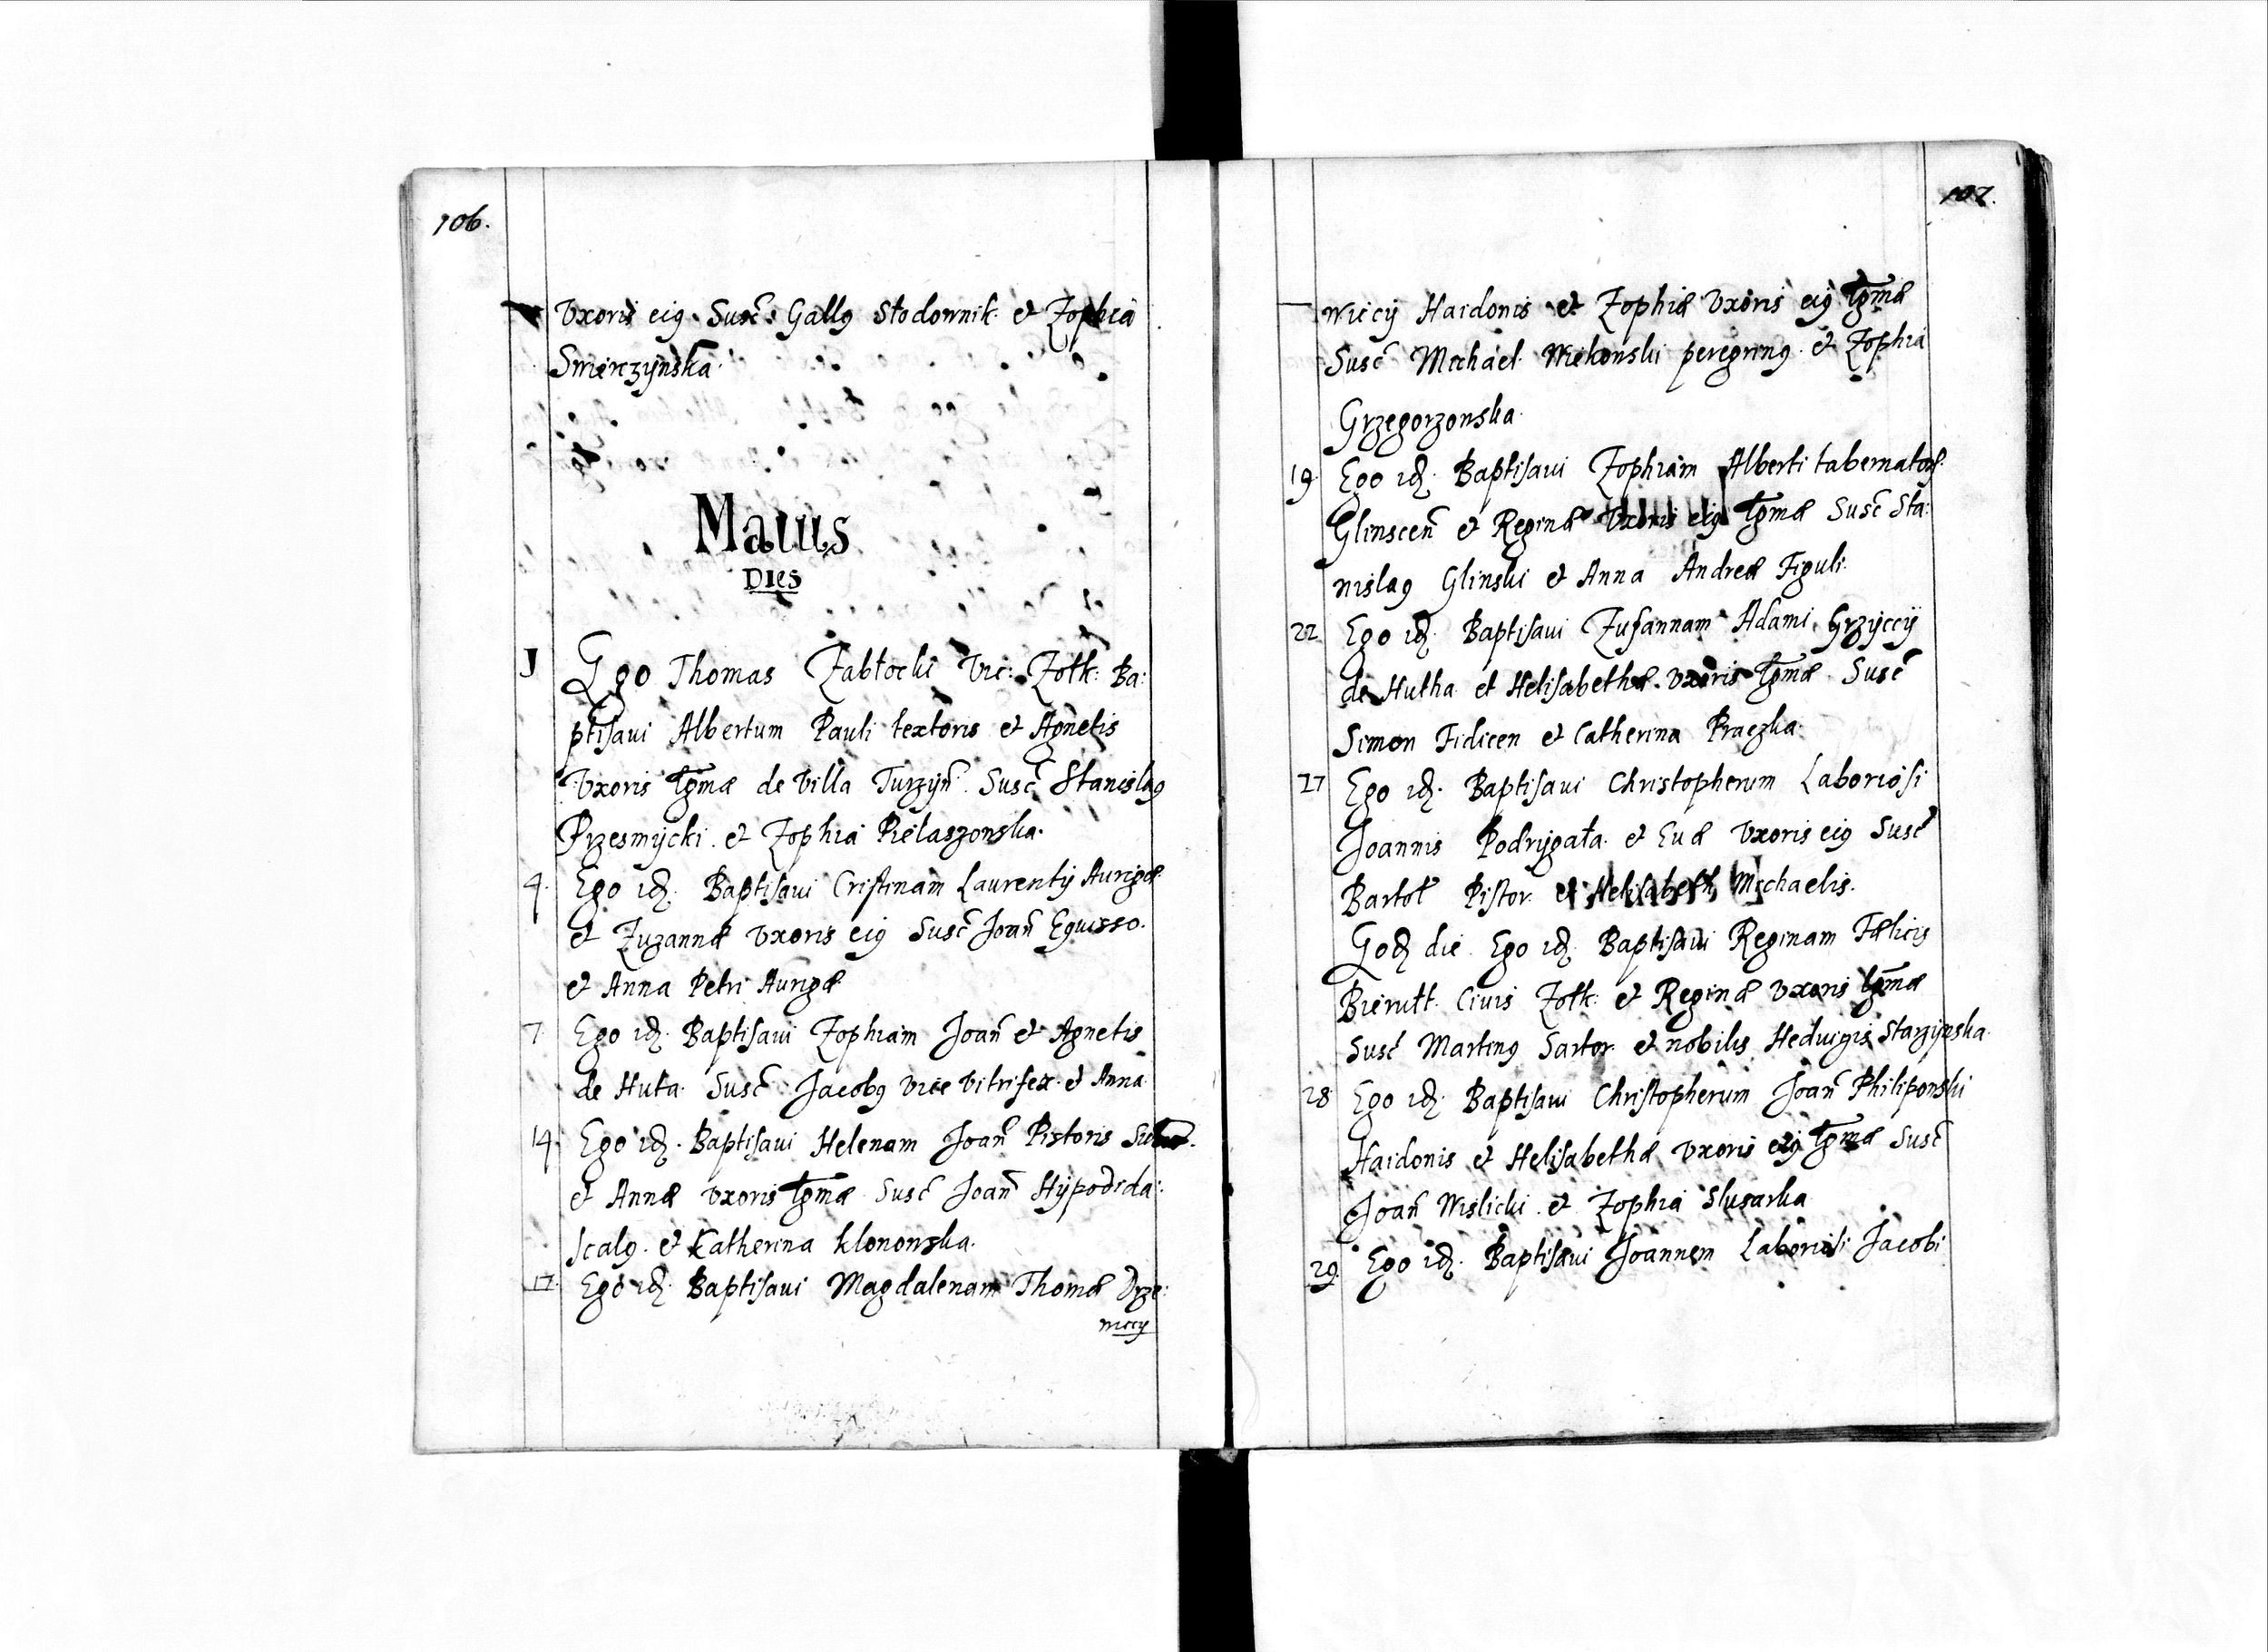 106.
Uxoris eiꝰ. Susc̄. Gallꝰ Słodownik. et Zophia
Swierczÿnska.
Maius
Dies
1 Ego Thomas Zabłocki Vic: Zołk: Ba:
ptisaui Albertum Pauli textoris et Agnetis
Uxoris lḡmæ de Villa Turzÿn̄. Susc̄ Stanislaꝰ
Przesmÿcki. et Zophia Pielaszowska.
4. Ego id. Baptisaui Cristinam Laurentij Aurigæ
et Zuzannæ Uxoris eiꝰ Susc̄ Joan̄ Eguisso.
et Anna Petri Aurigæ
7. Ego id. Baptisaui Zophiam Joan̄ et Agnetis
de Huta. Susc̄ Jacobꝰ vice Vitrifex. et Anna
14. Ego id. Baptisaui Helenam Joan̄ Pistoris
et Annæ Uxoris lḡmæ Susc̄ Joan̄ Hÿpodida:
scalꝰ. et Katherina Klonowska.
17. Ego id. Baptisaui Magdalenam Thomæ Drze:
wiccÿ
107.
wiccÿ Haidonis et Zophiæ Uxoris eiꝰ lḡmæ
Susc̄ Michael Wiekowski peregrinꝰ. et Zophia
Grzegorzowska.
19. Ego id. Baptisaui Zophiam Alberti tabernator.
Glinscen̄ et Reginæ Uxoris eiꝰ lḡmæ Susc̄ Sta:
nislaꝰ Glinski et Anna Andreæ Figuli.
22 Ego id. Baptisaui Zusannam Adami Grzÿccÿ
de Hutha et Helisabethæ Uxoris lḡmæ. Susc̄
Simon Fidicen et Catherina Praczka.
27 Ego id. Baptisaui Christopherum Laboriosi
Joannis Podrÿgała. et Euæ Uxoris eiꝰ Susc̄
Bartoł Pistor. et Helisabeth Michaelis.
Eod die. Ego id. Baptisaui Reginam Fælicis
Bierułt. Ciuis Zołk: et Reginæ Uxoris lḡmæ
Susc̄ Martinꝰ Sartor. et nobilis Heduigis Starzÿnska.
28. Ego id. Baptisaui Christopherum Joan̄ Philipowski
Haidonis et Helisabethæ Uxoris eiꝰ lḡmæ Susc̄
Joan̄ Wislicki. et Zophia Slusarka
29. Ego id. Baptisaui Joannem Laboriosi Jacobi